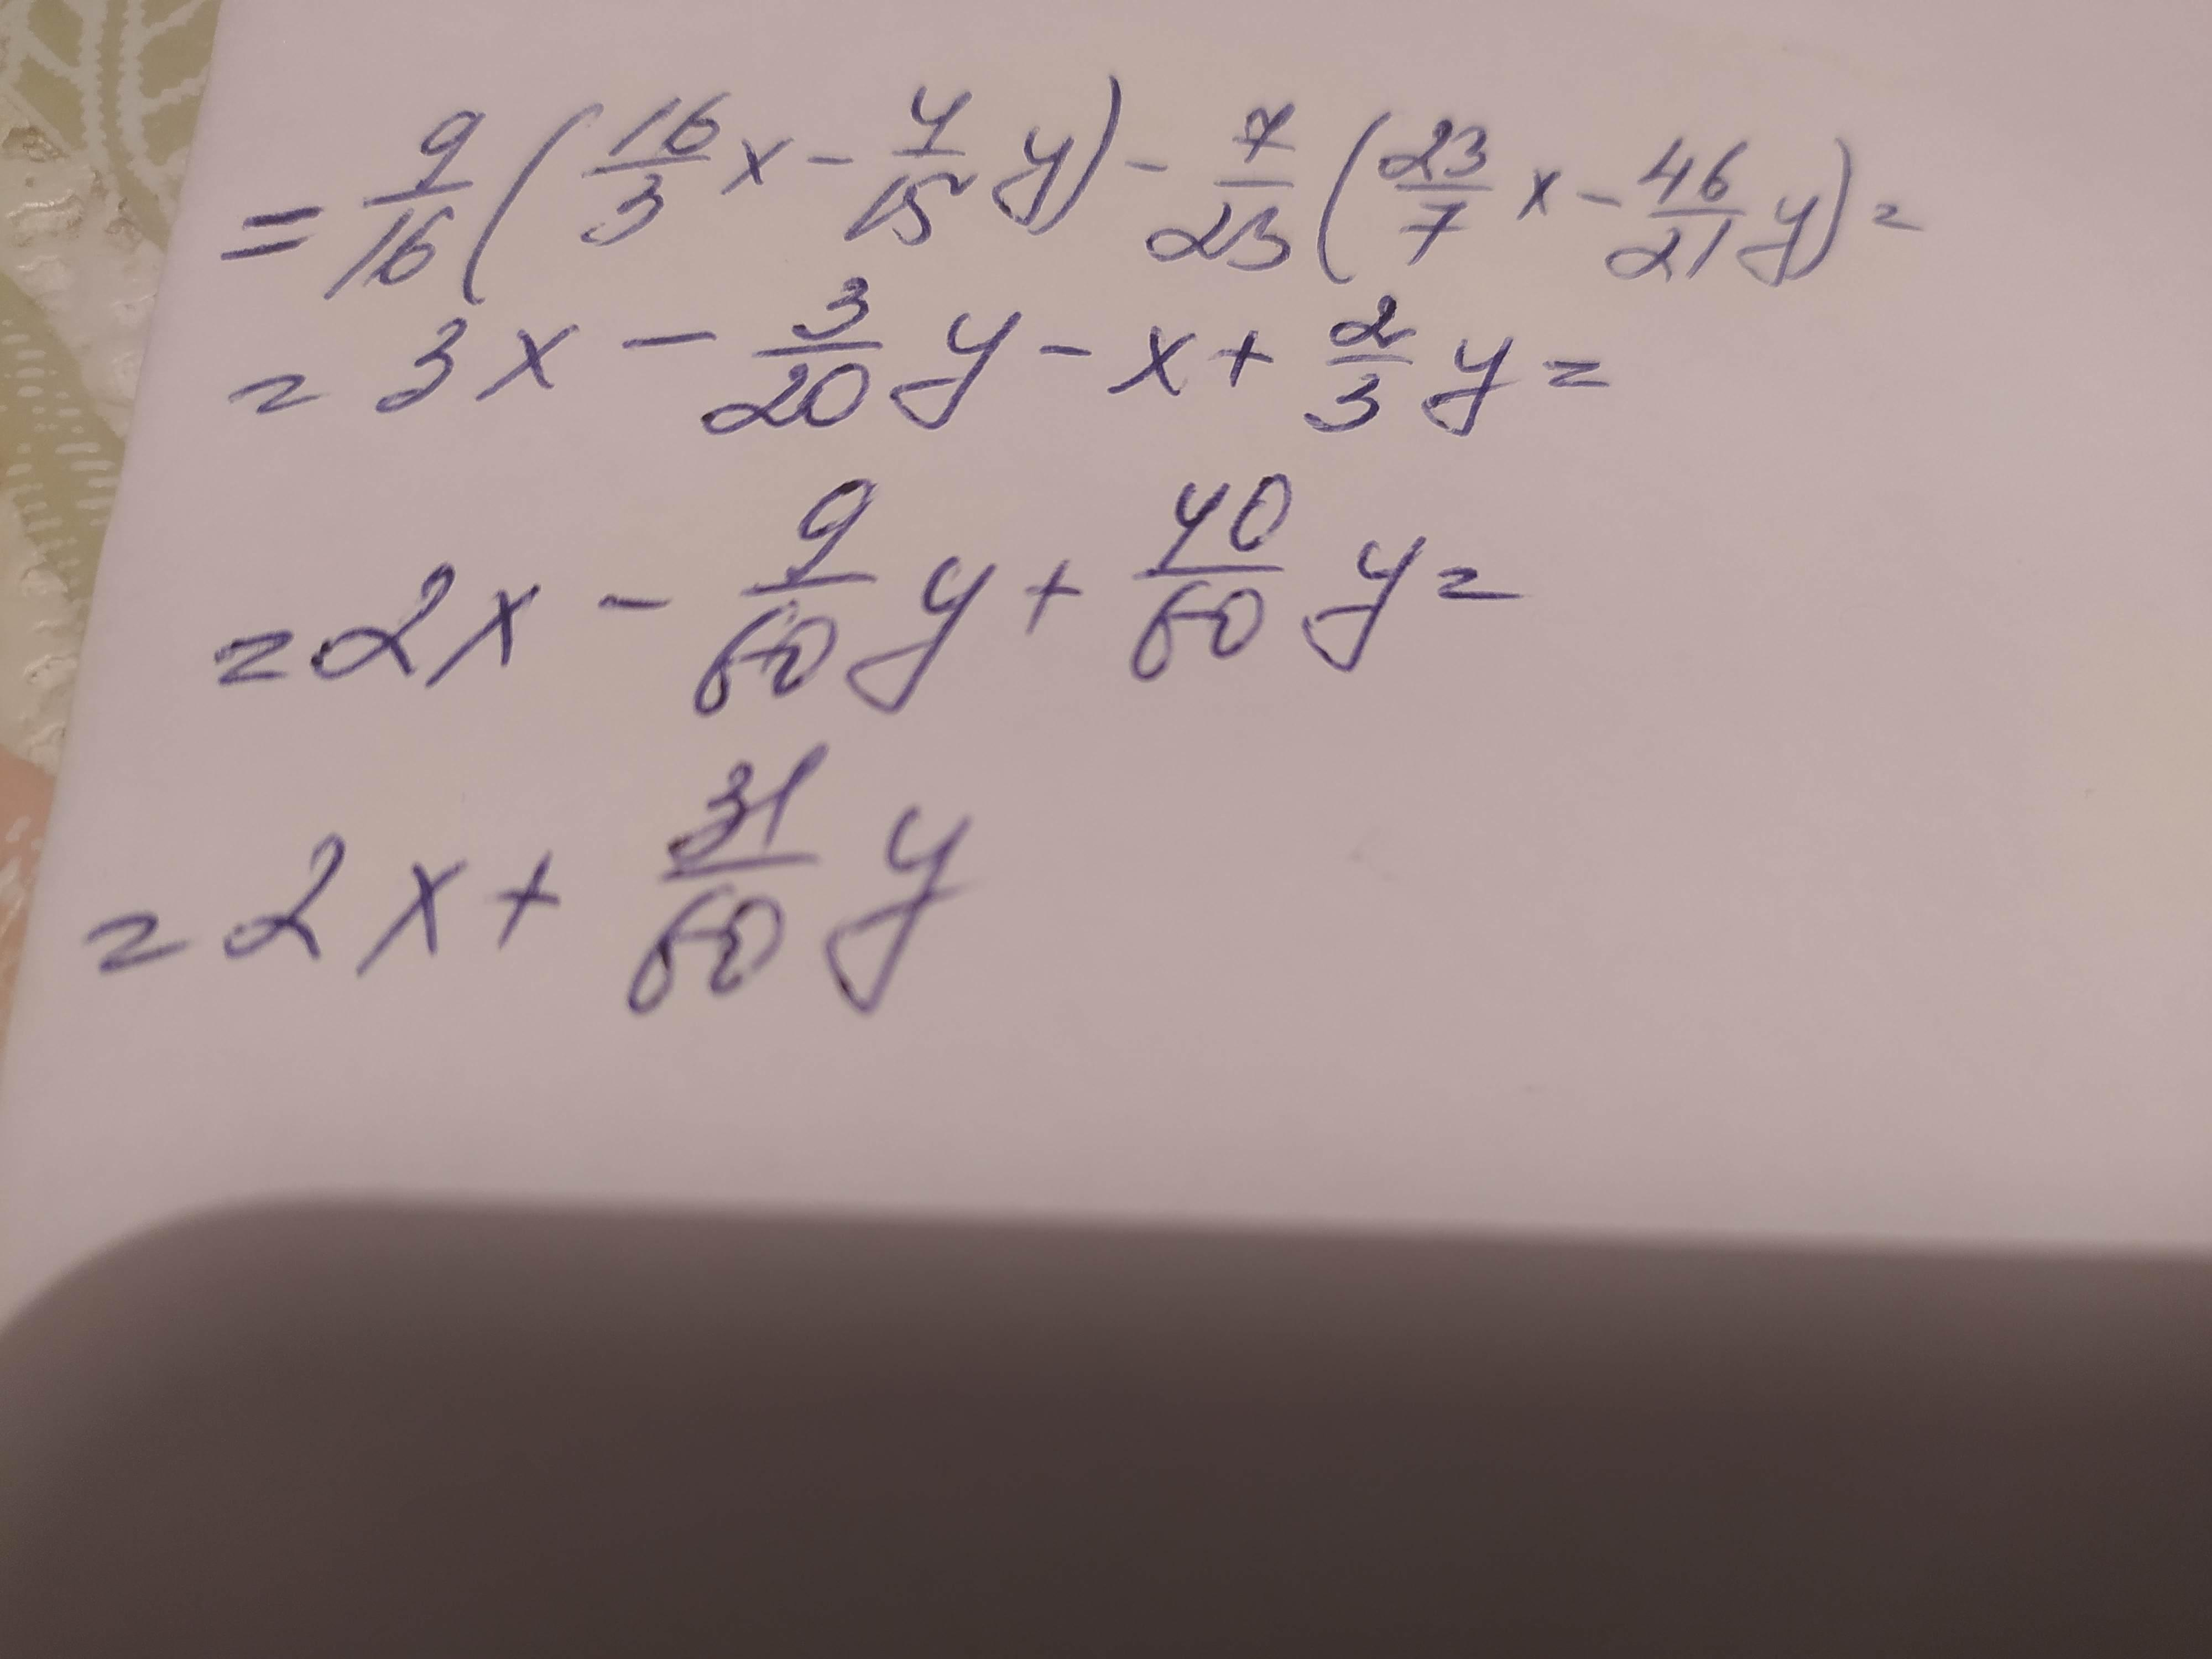 = 9/16 (16/3 x - 4/15 y) - 7/23 (23/7 x - 46/21 y) =
= 3x - 3/20 y - x + 2/3 y =
= 2x - 9/60 y + 40/60 y =
= 2x + 31/60 y